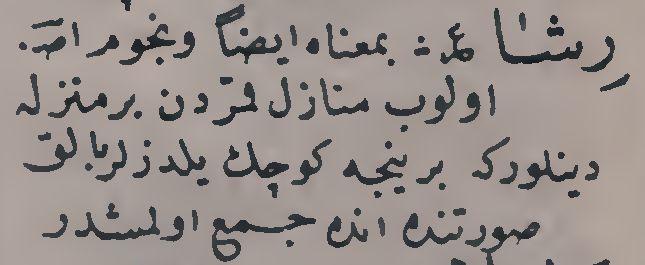 رشا ع: بمعناه ايضاً ونجوم اص
اولوب منازل قمردن بر منزله
دينلوركه بر نيجه كوچك يلدزلر بالق
صورتنده انده جمع اولمشدر